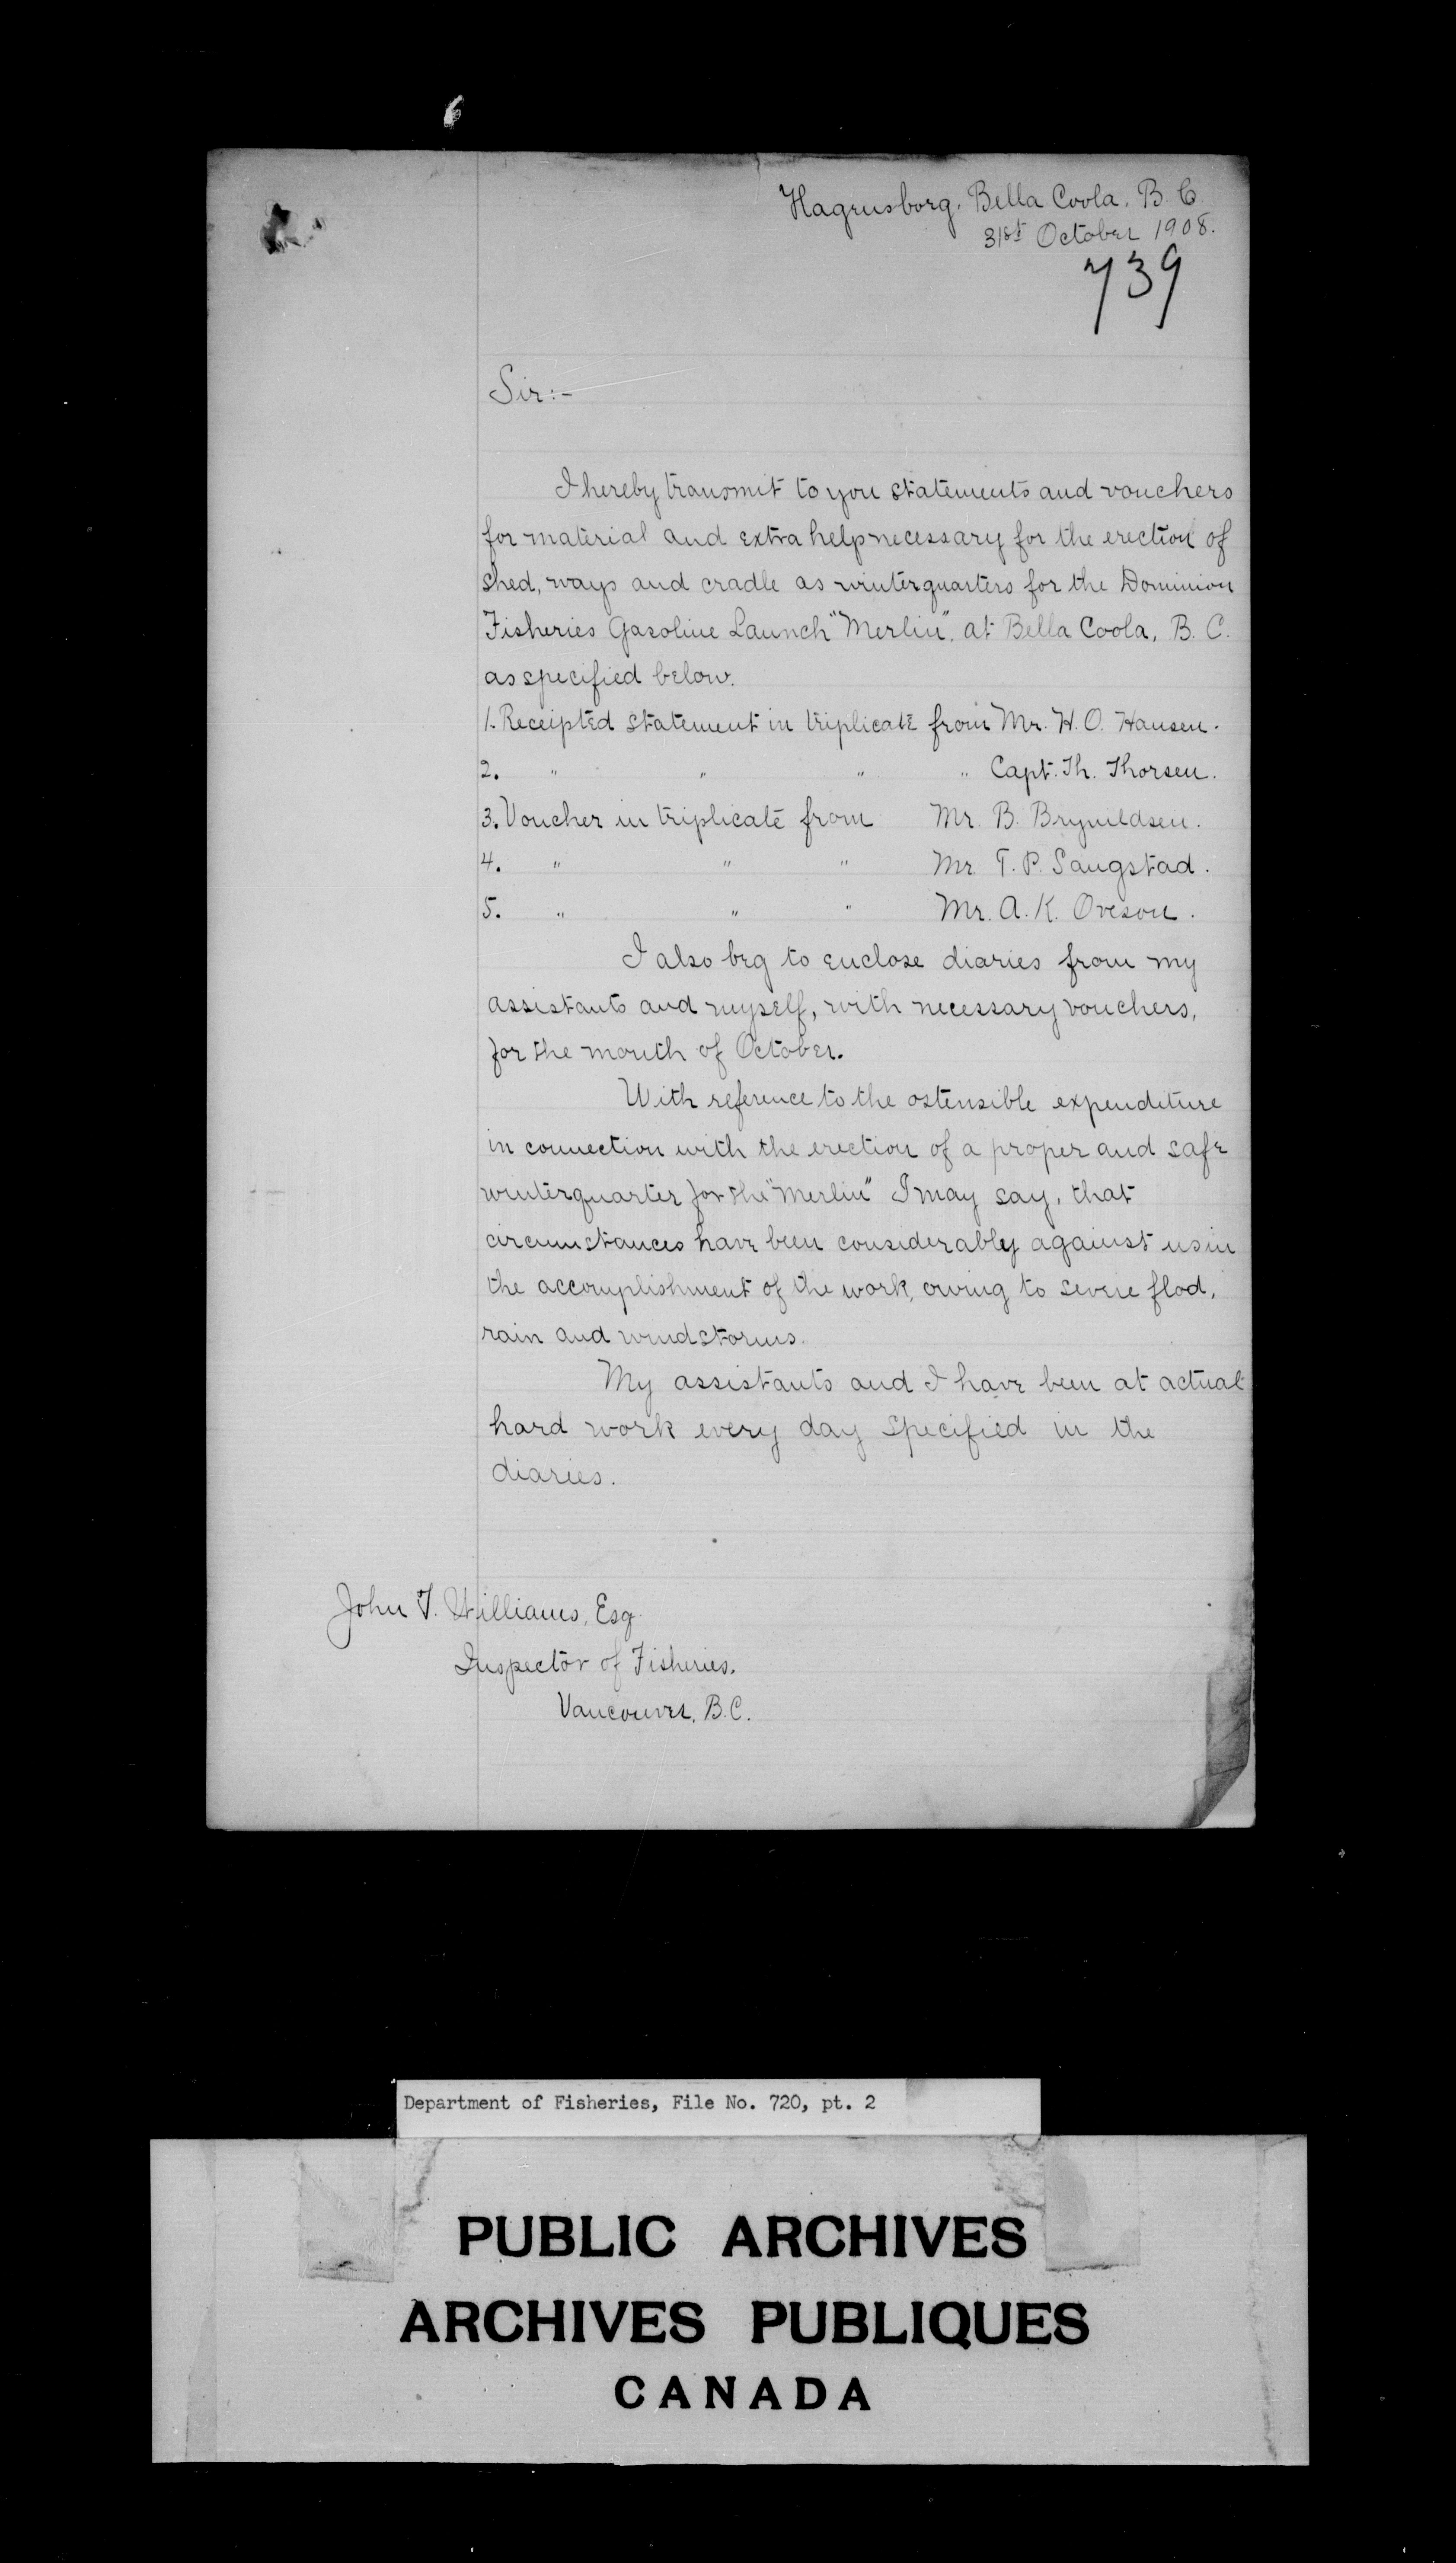 Hagensborg, Bella Coola, B. C.
31st October 1908.
739
Sir:-
I hereby transmit to you statements and vouchers
for material and extra help necessary for the erection of
shed, ways and cradle as winterquarters for the Dominion
Fisheries Gasoline Launch "Merlin", at Bella Coola, B. C.
as specified below.
1. Receipted statement in triplicate from Mr. H. O. Hansen.
2. " " " " Capt. Th. Thorsen.
3. Voucher in triplicate from Mr. B. Brynildsen.
4. " " " Mr. T. P. Saugstad.
5. " " " Mr. A. K. Oveson.
I also beg to enclose diaries from my
assistants and myself, with necessary vouchers,
for the month of October.
With reference to the ostensible expenditure
in connection with the erection of a proper and safe
winterquarter for the "Merlin" I may say, that
circumstances have been considerably against us in
the accomplishment of the work, owing to severe flod,
rain and windstorms.
My assistants and I have been at actual
hard work every day specified in the
diaries.
John T. Williams, Esq.
Inspector of Fisheries.
Vancouver, B.C.
Department of Fisheries, File No. 720, pt. 2
PUBLIC ARCHIVES
ARCHIVES PUBLIQUES
CANADA